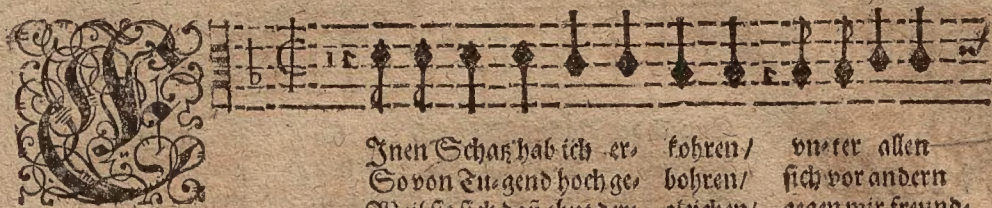 EJnen Schatz hab ich er- kohren/ vn-ter allen
So von Tu-gend hoch ge- bohren/ sich vor andern
gegen mir freund-